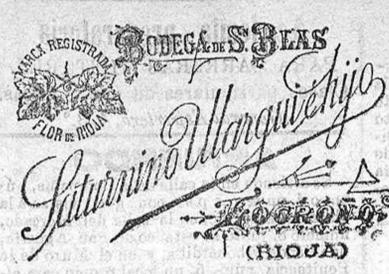 MARCA REGISTRADA
FLOR DE RIOJA
BODEGA DE Sn. BLAS
Saturnino Ulargui é hijo
LOGROÑO
(RIOJA)